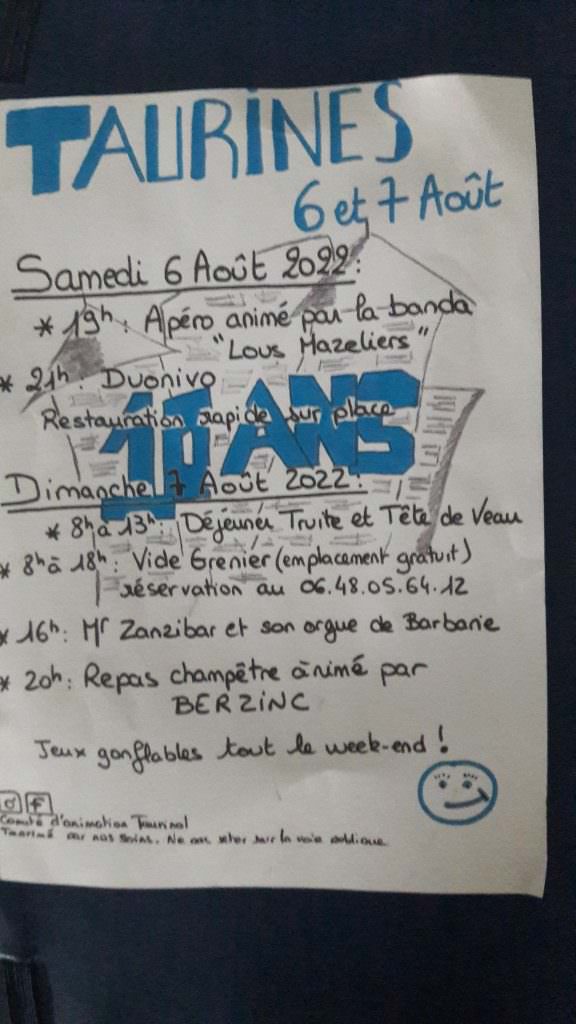 TAURINES
6 et 7 Août
Samedi 6 Août 2022:
* 19h: Apéro animé par la banda
"Lous Mazeliers"
* 21h: Duonivo
Restauration rapide sur place
10 ANS
Dimanche 7 Août 2022:
* 8h à 13h: Déjeuner Truite et Tête de Veau
* 8h à 18h: Vide Grenier (emplacement gratuit)
réservation au 06.48.05.64.12
* 16h: Mr Zanzibar et son orgue de Barbarie
* 20h: Repas champêtre animé par
BERZINC
Jeux gonflables tout le week-end!
Comité d'animation Taurinol
Imprimé par nos soins. Ne pas jeter sur la voie publique